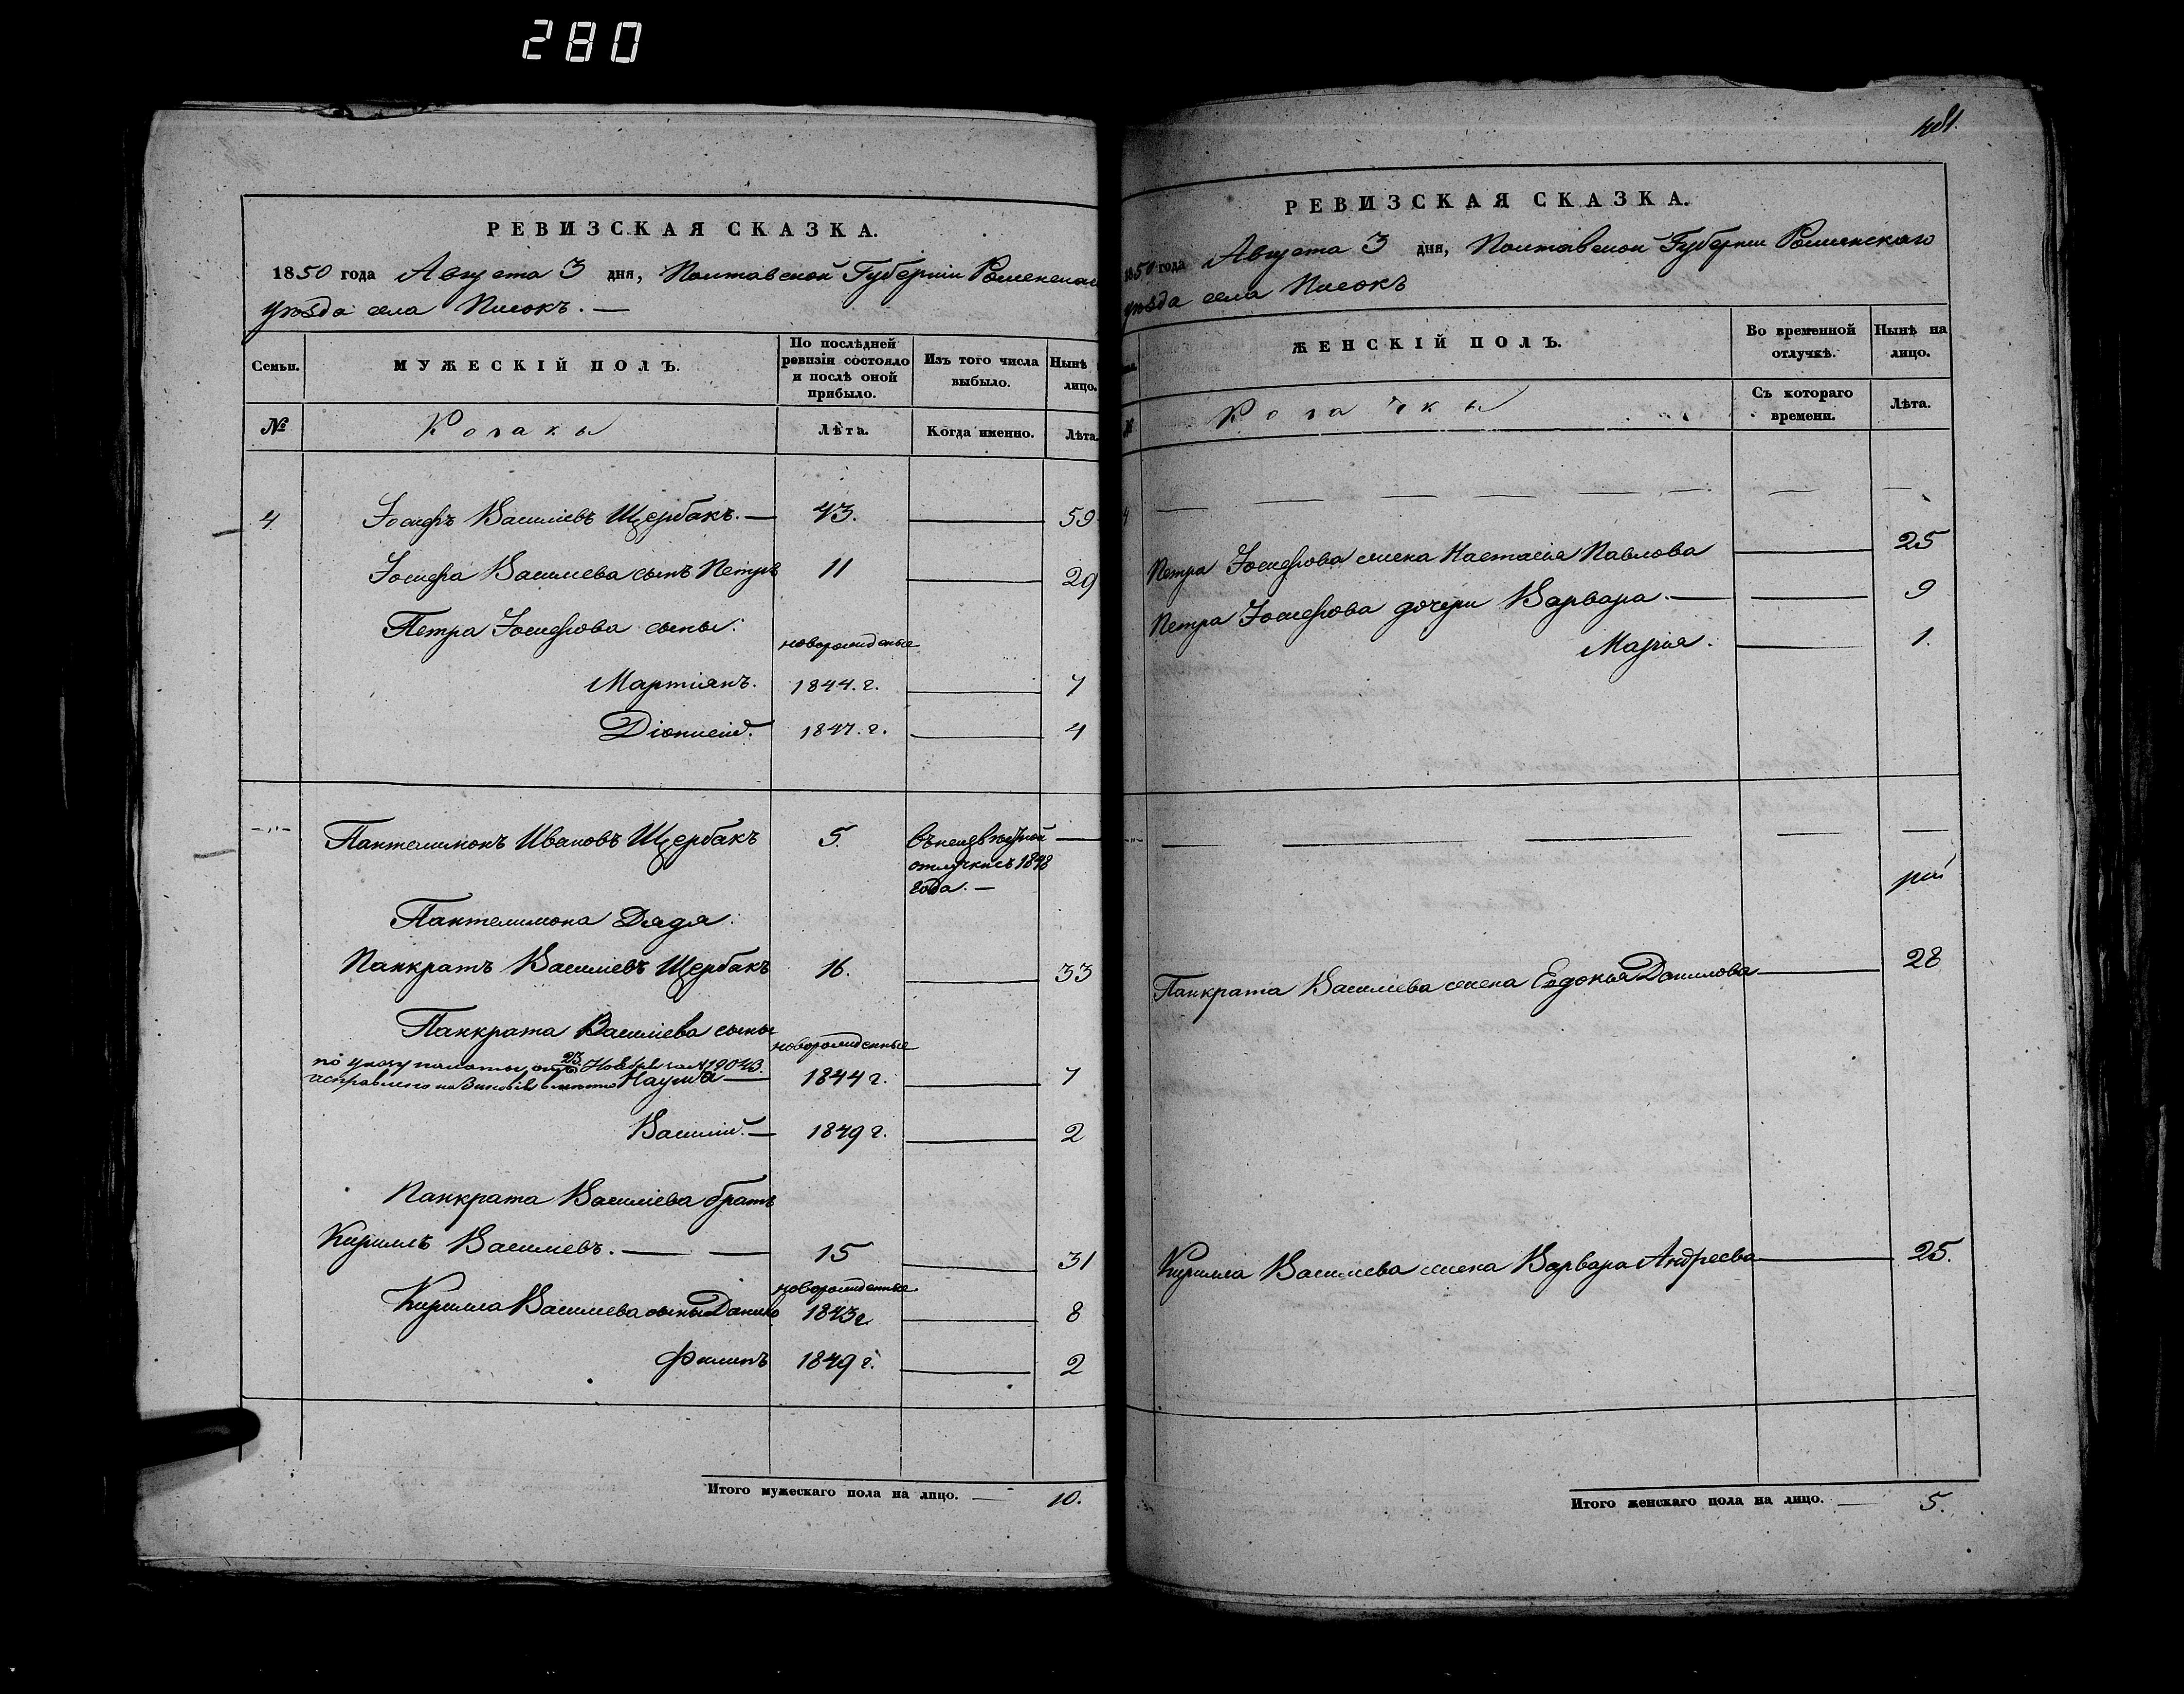 280
РЕВИЗСКАЯ СКАЗКА.
1850 года Августа 3 дня, Полтавской Губерніи Роменскаго
уѣзда села Писокъ. —
Семьи.
МУЖЕСКІЙ ПОЛЪ.
По послѣдней ревизіи состояло и послѣ оной прибыло.
Изъ того числа выбыло.
Нынѣ лицо.
№
Козаки
Лѣта.
Когда именно.
Лѣта.
4 Іосифъ Василіевъ Щербакъ. — 43. 59
Іосифа Василиева сынъ Петръ 11 29
Петра Іосифова сыны:
новорожденные
Мартіянъ. 1844. г. 7
Діонисій. 1847. г. 4
—„— Пантелимонъ Ивановъ Щербакъ 5.
въ неизвѣстной
отлучкѣ съ 1848
года. —
Пантелимона Дядя:
Панкратъ Василіевъ Щербакъ 16. 33
Панкрата Василіева сыны
новорожденные
по указу палаты отъ 23 Ноября за № 19043.
исправлено на Зиновія вмѣсто Наума — 1844 г. 7
Василій. — 1849 г. 2
Панкрата Василіева братъ
Кириллъ Василиевъ. — — 15 31
новорожденные
Кирилла Василиева сыны Данило 1843 г. 8
Филипъ 1849 г. 2
Итого мужескаго пола на лицо. — 10.
481.
РЕВИЗСКАЯ СКАЗКА.
1850 года Августа 3 дня, Полтавской Губерніи Роменскаго
уѣзда села Писокъ
ЖЕНСКІЙ ПОЛЪ.
Во временной отлучкѣ.
Нынѣ на лицо.
№
Козачки
Съ котораго времени.
Лѣта.
4
Петра Іосифова жена Настасія Павлова 25
Петра Іосифова дочери Варвара. — 9
Марія. 1.
Панкрата Василіева жена Евдокія Данилова 28
Кирилла Василиева жена Варвара Андреева 25.
Итого женскаго пола на лицо. — 5.